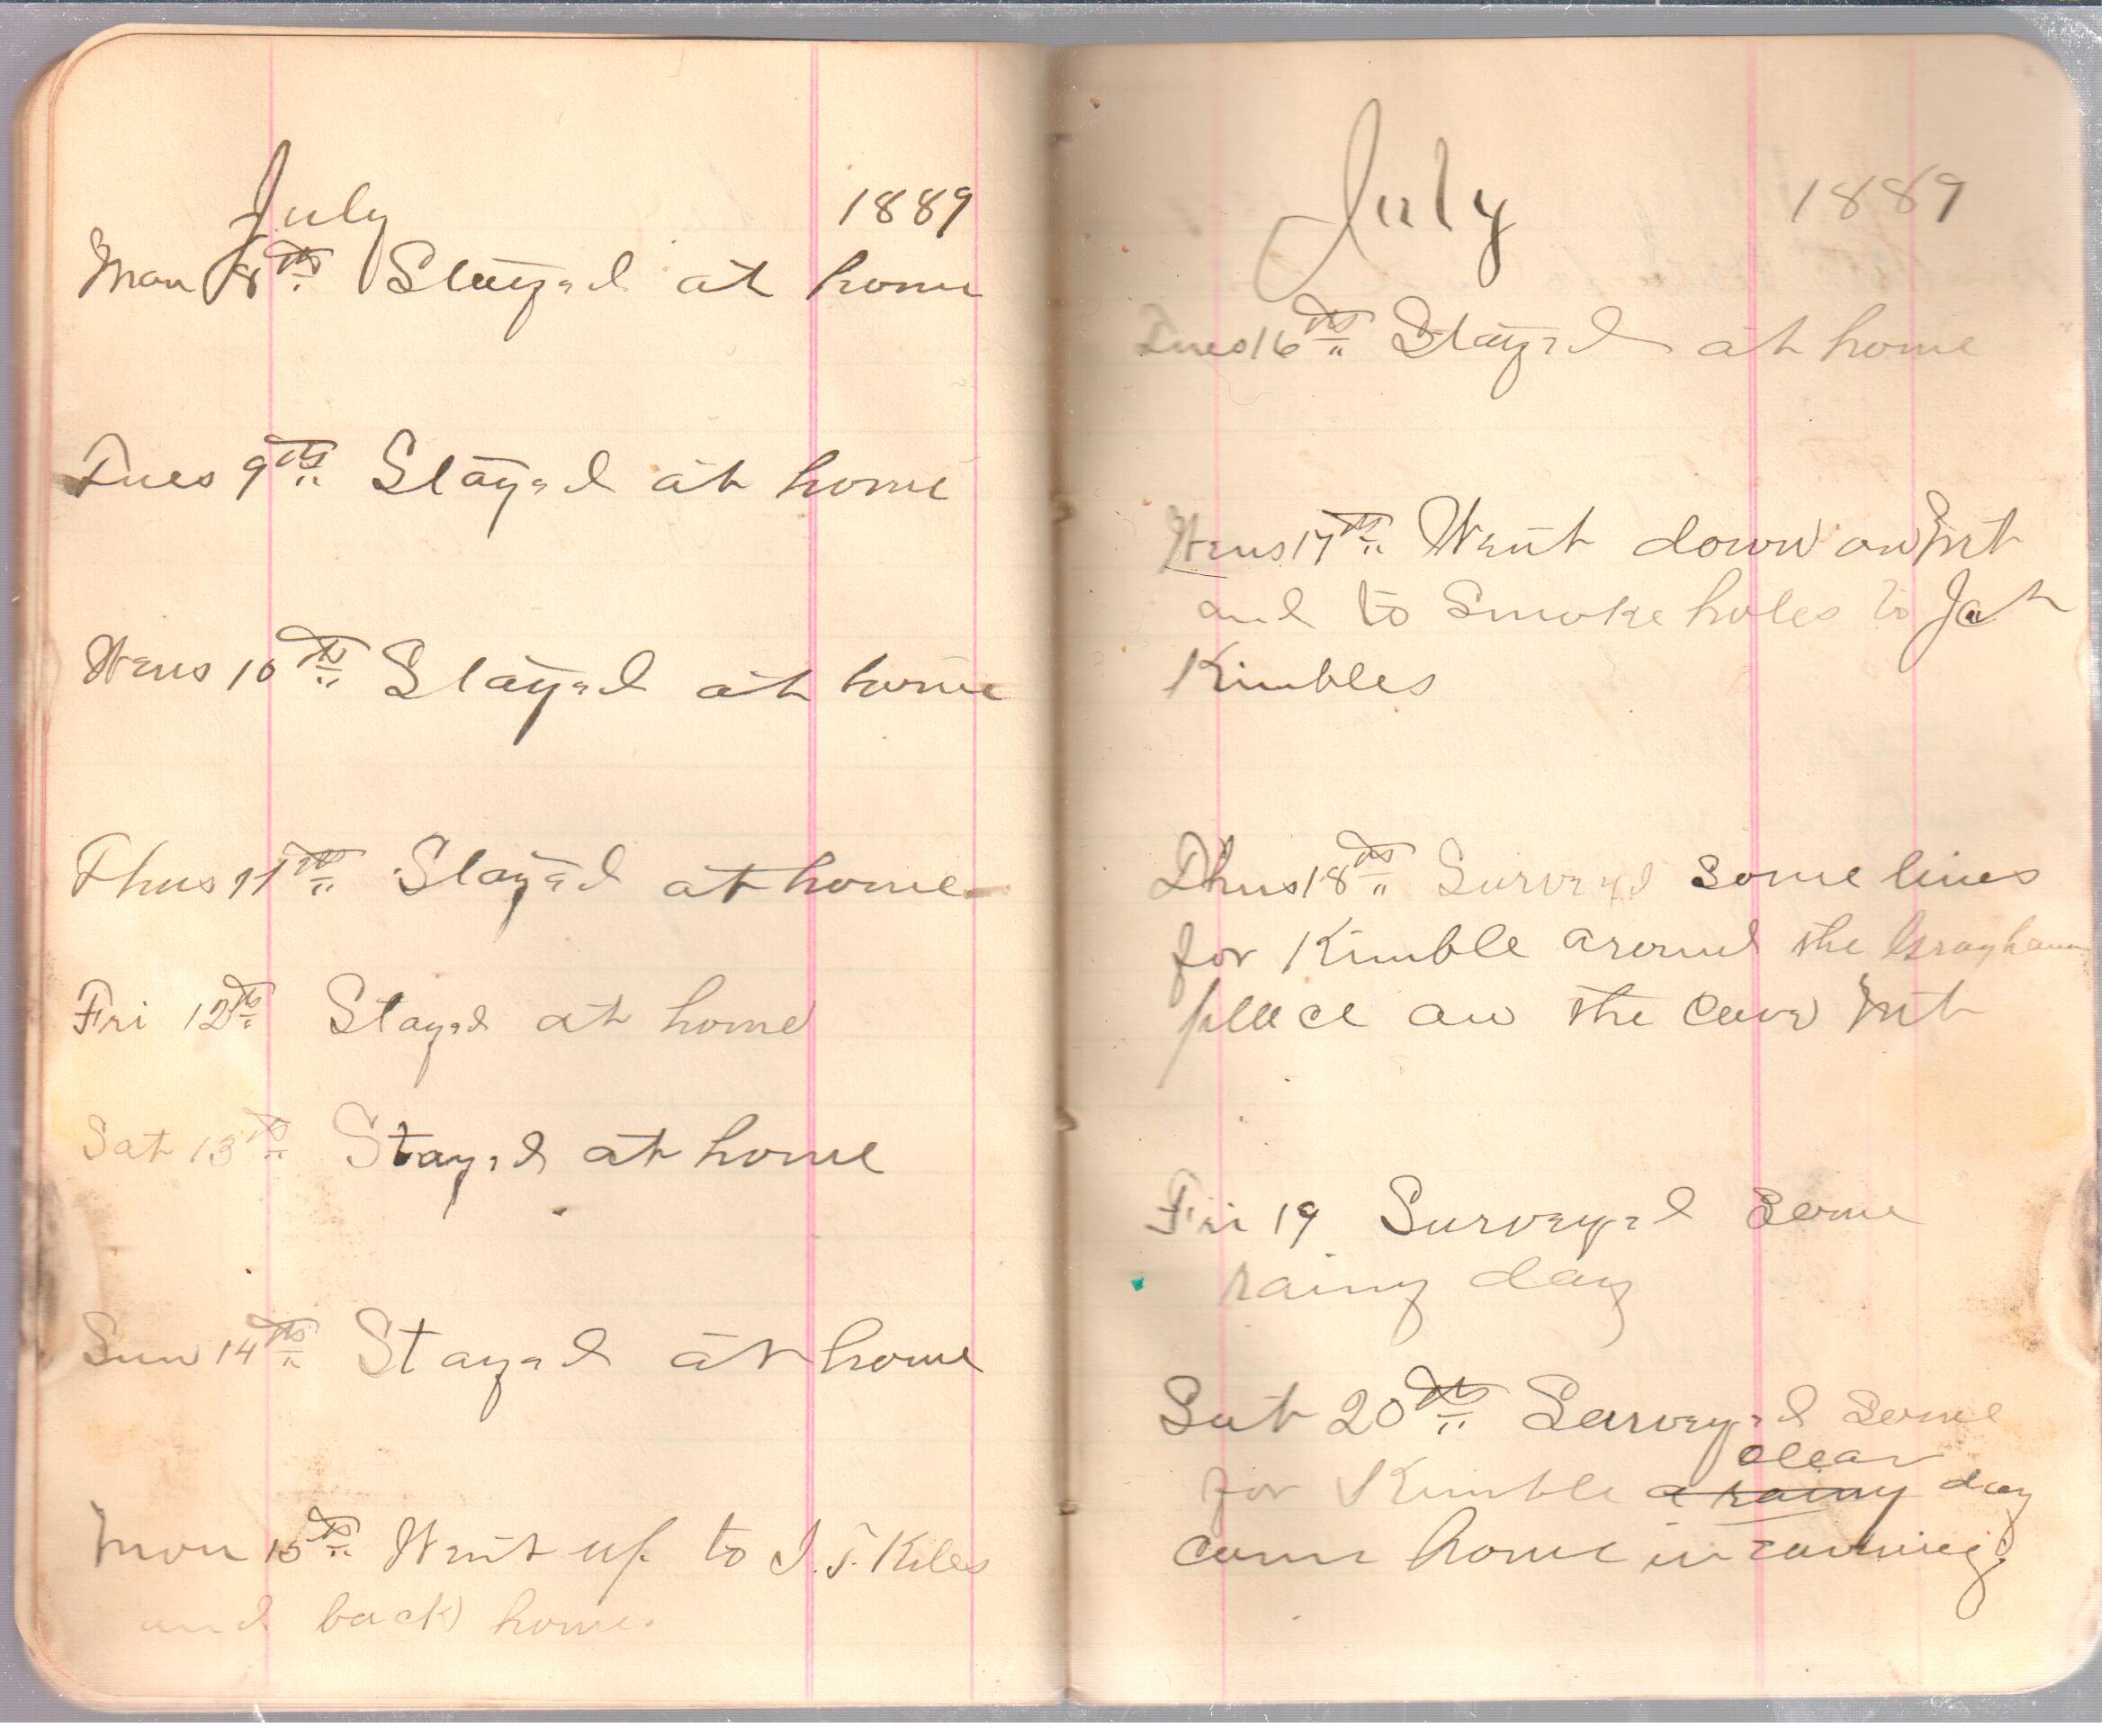 July 1889
Mon 8th Stayed at home
Tues 9th Stayed at home
Wens 10th Stayed at home
Thus 11th Stayed at home
Fri 12th Stayed at home
Sat 13th Stayed at home
Sun 14th Stayed at home
Mon 15th Went up to J. T. Kiles
and back home.
July 1889
Tues 16th Stayed at home
Wens 17th Went down on Mt
and to Smoke holes to
Kimbles
Thus 18th Surveyd some lines
for Kimble around the Grayham
place on the Cave Mt
Fri 19 Surveyed Some
rainy day
Sat 20th Surveyed Some
clear
for Kimble a rainy day
came home in evening